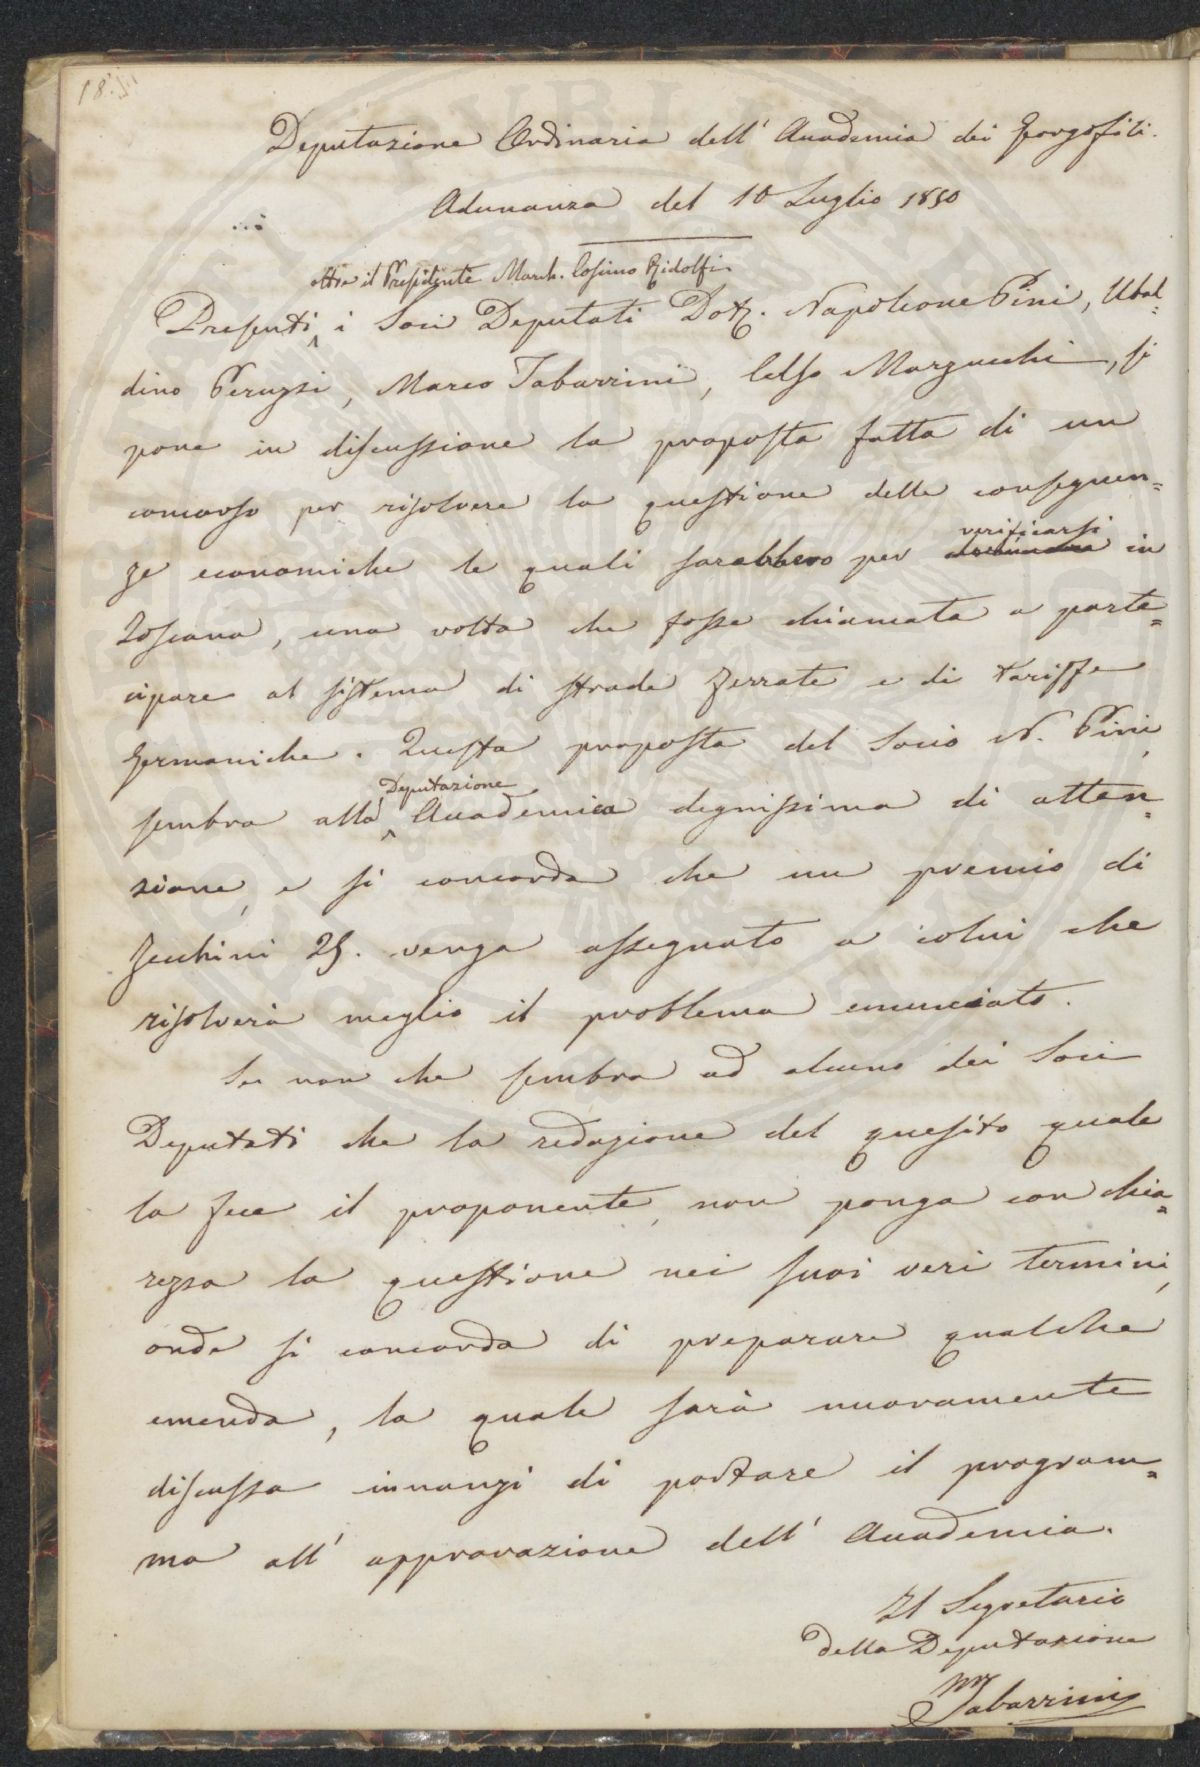 Deputazione Ordinaria dell' Accademia dei Georgofili.
Adunanza del 10 Luglio 1850
oltre il Presidente March. Cosimo Ridolfi
Presenti i Soci Deputati Dott. Napoleone Pini, Ubal=
dino Peruzzi, Marco Tabarrini, Celso Marzucchi, si
pone in discussione la proposta fatta di un
concorso per risolvere la questione delle conseguen=
ze economiche le quali sarebbero per verificarsi in
Toscana, una volta che fosse chiamata a parte=
cipare al sistema di strade ferrate e di tariffe
germaniche. Questa proposta del Socio N. Pini,
sembra alla Deputazione Accademica degnissima di atten=
zione, e si concorda che un premio di
Zecchini 25. venga assegnato a colui che
risolverà meglio il problema enunciato.
Se non che sembra ad alcuno dei Soci
Deputati che la redazione del quesito quale
la fece il proponente, non ponga con chia=
rezza la questione nei suoi veri termini,
onde si concorda di preparare qualche
emenda, la quale sarà nuovamente
discussa innanzi di portare il program=
ma all' approvazione dell' Accademia.
Il Segretario
della Deputazione
M Tabarrini